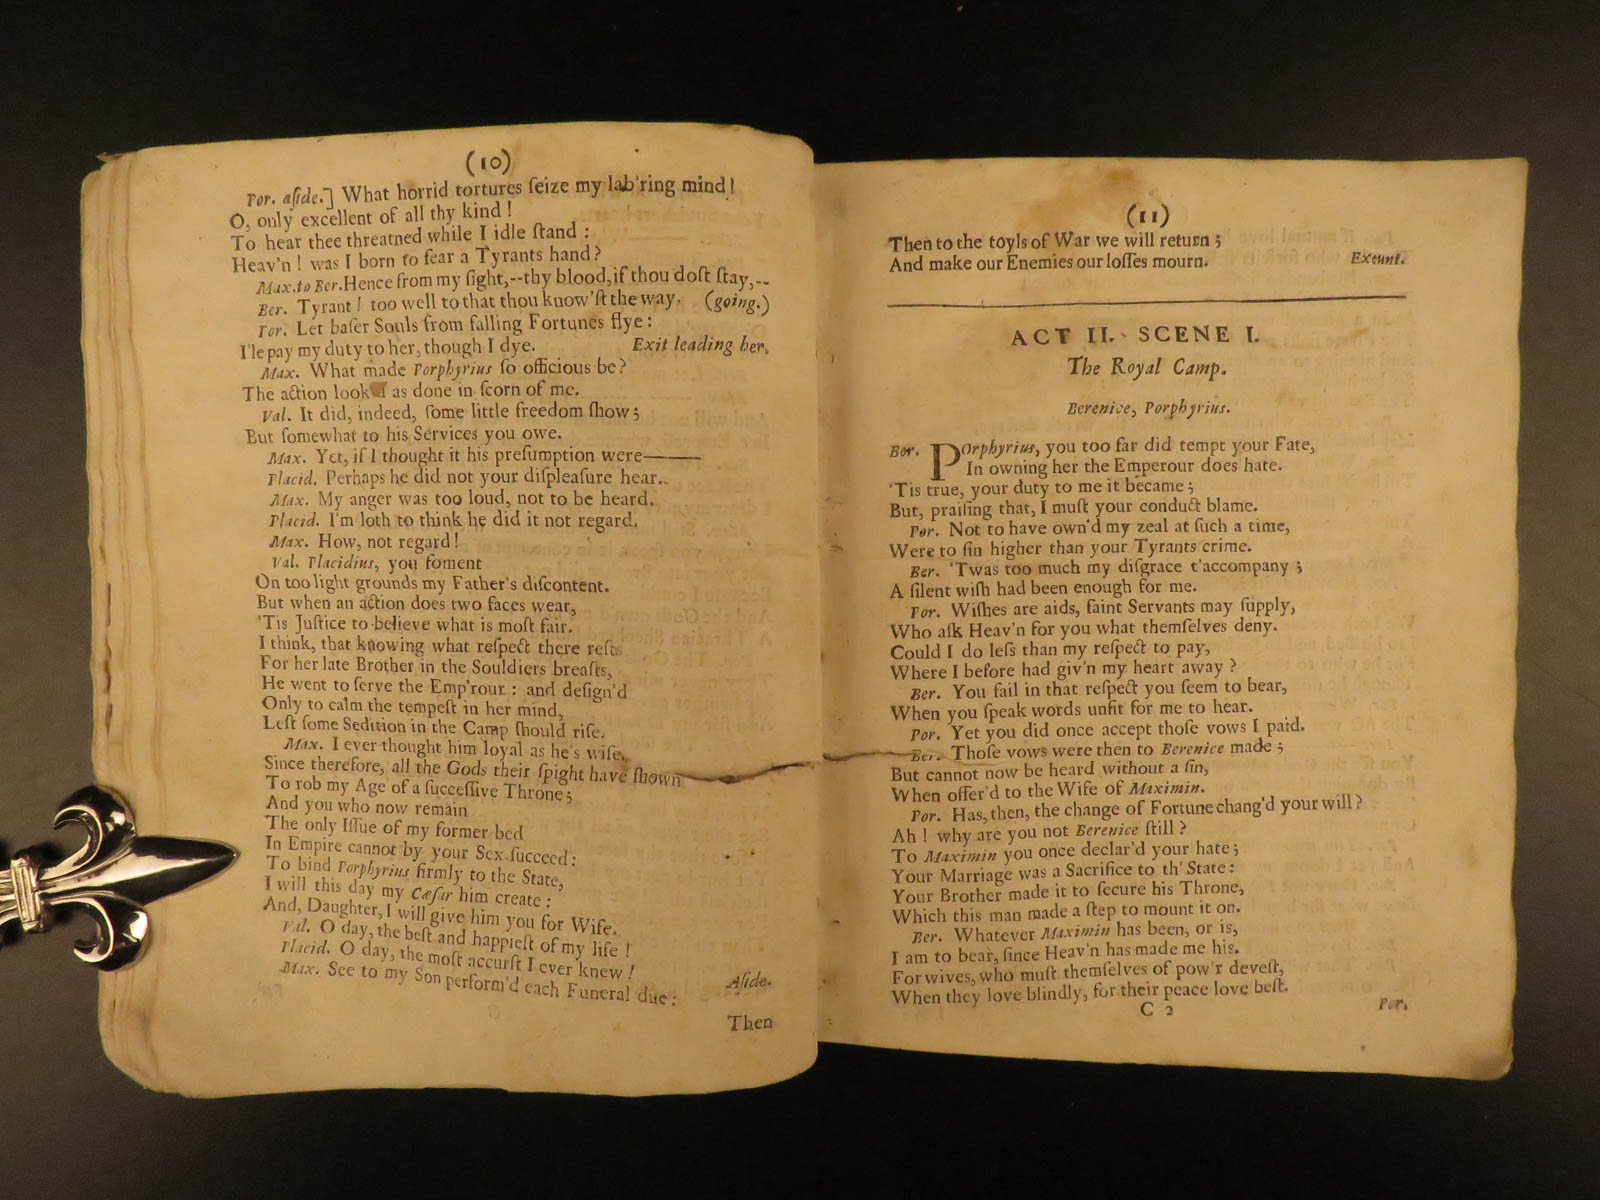 (10)
Por. aſide.] What horrid tortures ſeize my lab'ring mind!
O, only excellent of all thy kind!
To hear thee threatned while I idle ſtand:
Heav'n! was I born to fear a Tyrants hand?
Max. to Ber. Hence from my ſight,--thy blood, if thou doſt ſtay,--
Ber. Tyrant! too well to that thou know'ſt the way. (going.)
Por. Let baſer Souls from falling Fortunes flye:
I'le pay my duty to her, though I dye. Exit leading her.
Max. What made Porphyrius ſo officious be?
The action look as done in ſcorn of me.
Val. It did, indeed, ſome little freedom ſhow;
But ſomewhat to his Services you owe.
Max. Yet, if I thought it his preſumption were——
Placid. Perhaps he did not your diſpleaſure hear.
Max. My anger was too loud, not to be heard.
Placid. I'm loth to think he did it not regard.
Max. How, not regard!
Val. Placidius, you foment
On too light grounds my Father's diſcontent.
But when an action does two faces wear,
'Tis Juſtice to believe what is moſt fair.
I think, that knowing what reſpect there reſts
For her late Brother in the Souldiers breaſts,
He went to ſerve the Emp'rour: and deſign'd
Only to calm the tempeſt in her mind,
Leſt ſome Sedition in the Camp ſhould riſe.
Max. I ever thought him loyal as he's wiſe.
Since therefore, all the Gods their ſpight have ſhown
To rob my Age of a ſucceſſive Throne;
And you who now remain
The only Iſſue of my former bed
In Empire cannot by your Sex ſucceed:
To bind Porphyrius firmly to the State,
I will this day my Cæſar him create:
And, Daughter, I will give him you for Wife.
Val. O day, the beſt and happieſt of my life!
Placid. O day, the moſt accurſt I ever knew! Aſide.
Max. See to my Son perform'd each Funeral due:
Then
(11)
Then to the toyls of War we will return;
And make our Enemies our loſſes mourn. Exeunt.
ACT II. SCENE I.
The Royal Camp.
Berenice, Porphyrius.
Ber. Porphyrius, you too far did tempt your Fate,
In owning her the Emperour does hate.
'Tis true, your duty to me it became;
But, praiſing that, I muſt your conduct blame.
Por. Not to have own'd my zeal at ſuch a time,
Were to ſin higher than your Tyrants crime.
Ber. 'Twas too much my diſgrace t'accompany;
A ſilent wiſh had been enough for me.
Por. Wiſhes are aids, faint Servants may ſupply,
Who aſk Heav'n for you what themſelves deny.
Could I do leſs than my reſpect to pay,
Where I before had giv'n my heart away?
Ber. You fail in that reſpect you ſeem to bear,
When you ſpeak words unfit for me to hear.
Por. Yet you did once accept thoſe vows I paid.
Ber. Thoſe vows were then to Berenice made;
But cannot now be heard without a ſin,
When offer'd to the Wife of Maximin.
Por. Has, then, the change of Fortune chang'd your will?
Ah! why are you not Berenice ſtill?
To Maximin you once declar'd your hate;
Your Marriage was a Sacrifice to th' State:
Your Brother made it to ſecure his Throne,
Which this man made a ſtep to mount it on.
Ber. Whatever Maximin has been, or is,
I am to bear, ſince Heav'n has made me his.
For wives, who muſt themſelves of pow'r deveſt,
When they love blindly, for their peace love beſt.
C 2 Por.